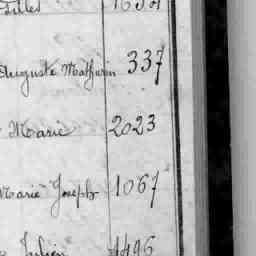 Auguste Mathurin 337
Marie 2023
Marie Joseph 1067
Julien 1496